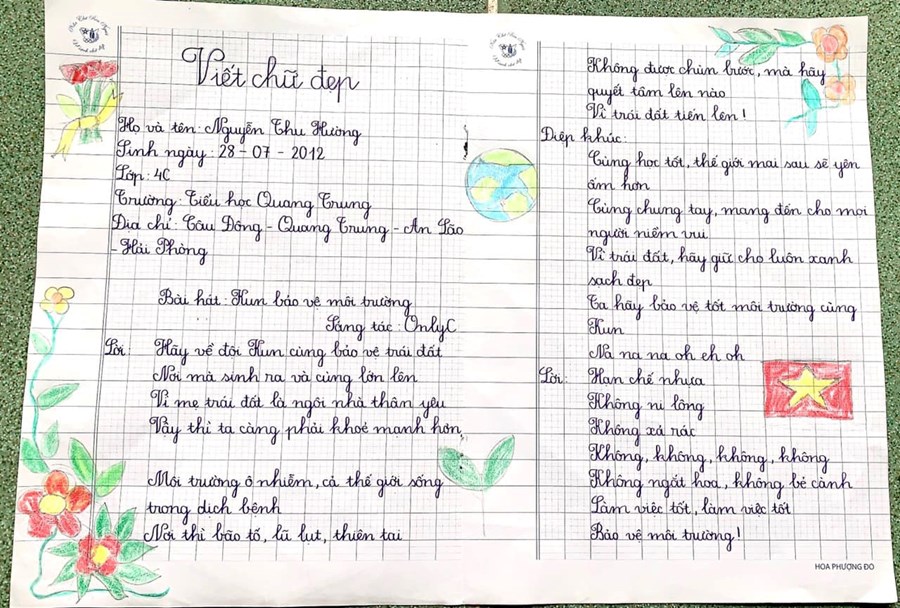 Viết chữ đẹp
Họ và tên: Nguyễn Thu Hường
Sinh ngày: 28 - 07 - 2012
Lớp: 4C
Trường: Tiểu học Quang Trung
Địa chỉ: Câu Đông - Quang Trung - An Lão
- Hải Phòng
Bài hát: Kun bảo vệ môi trường
Sáng tác: OnlyC
Lời: Hãy về đội Kun cùng bảo vệ trái đất
Nơi mà sinh ra và cùng lớn lên
Vì mẹ trái đất là ngôi nhà thân yêu
Vậy thì ta càng phải khoẻ mạnh hơn,
Môi trường ô nhiễm, cả thế giới sống
trong dịch bệnh
Nơi thì bão tố, lũ lụt, thiên tai
Không được chùn bước, mà hãy
quyết tâm lên nào
Vì trái đất tiến lên!
Điệp khúc:
Cùng học tốt, thế giới mai sau sẽ yên
ấm hơn
Cùng chung tay, mang đến cho mọi
người niềm vui
Vì trái đất, hãy giữ cho luôn xanh
sạch đẹp
Ta hãy bảo vệ tốt môi trường cùng
Kun
Na na na oh eh oh
Lời: Hạn chế nhựa
Không ni lông
Không xả rác
Không, không, không, không
Không ngắt hoa, không bẻ cành
Làm việc tốt, làm việc tốt
Bảo vệ môi trường!
HOA PHƯỢNG ĐỎ